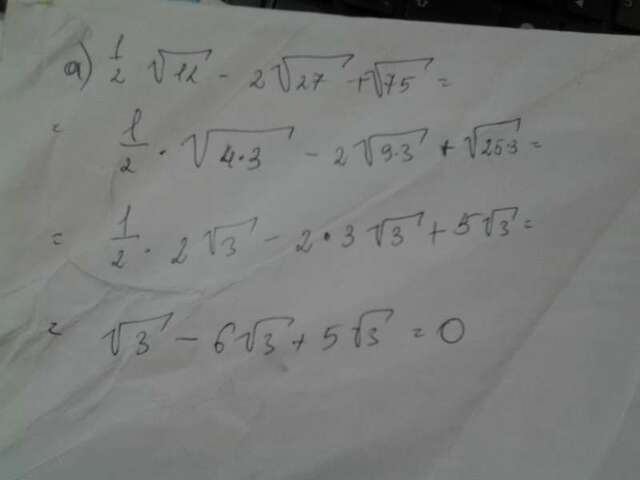 а) 1/2 √12 - 2√27 + √75 =
= 1/2 · √4·3 - 2√9·3 + √25·3 =
= 1/2 · 2√3 - 2·3√3 + 5√3 =
= √3 - 6√3 + 5√3 = 0